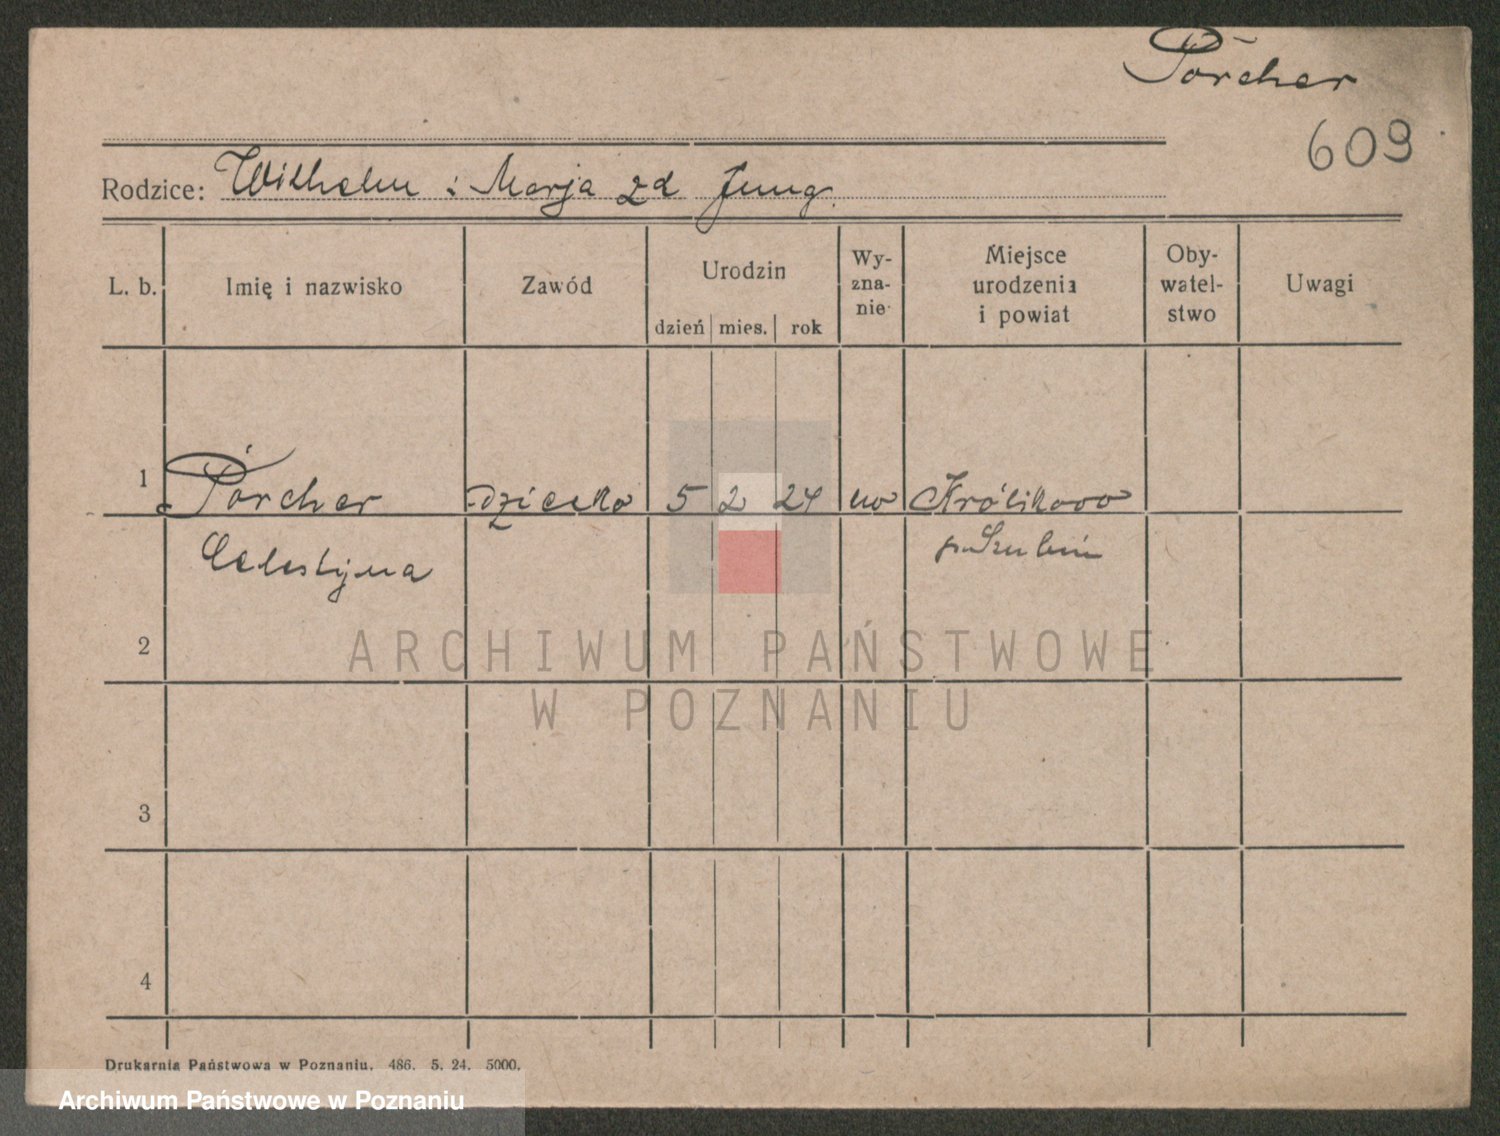 Pörcher
609
Rodzice: Wilhelm i Marja zd Jung
L. b. Imię i nazwisko Zawód Urodzin dzień mies. rok Wy-zna-nie Miejsce urodzenia i powiat Oby-watel-stwo Uwagi
1 Pörcher dziecko 5 2 24 Królikowo
Celestyna p. Szubin
2
3
4
ARCHIWUM PAŃSTWOWE
W POZNANIU
Drukarnia Państwowa w Poznaniu. 486. 5. 24. 5000.
Archiwum Państwowe w Poznaniu